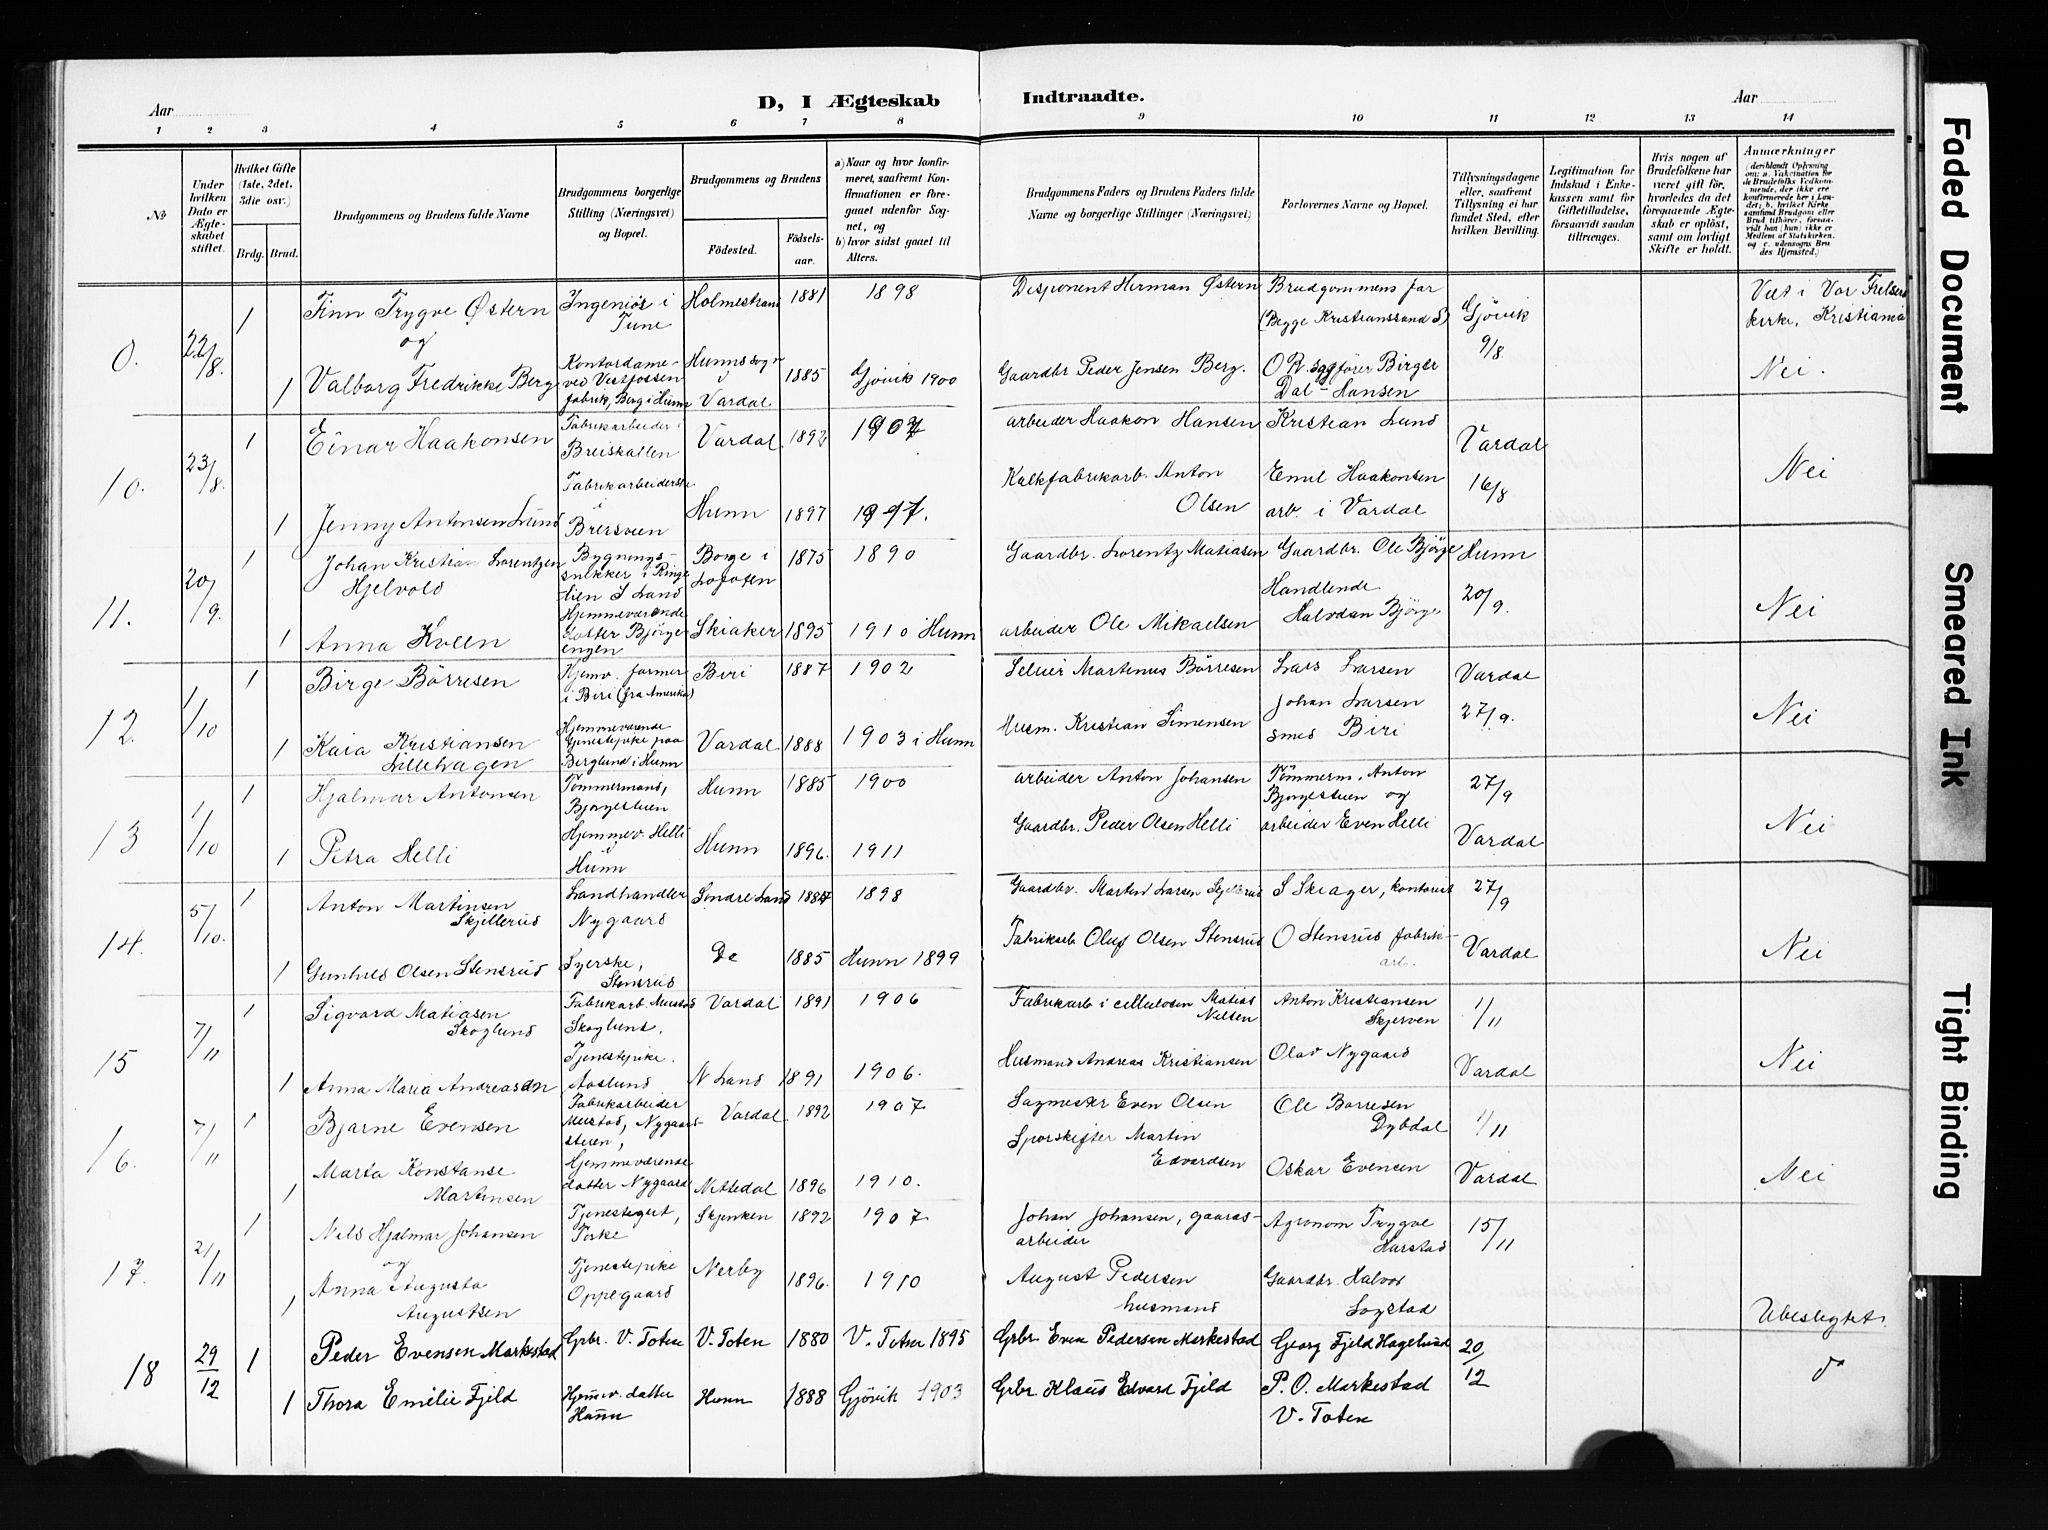 Aar
D, I Ægteskab Indtraadte.
Aar
1 2 3 4 5 6 7 8 9 10 11 12 13 14
№
Under hvilken Dato er Ægteskabet stiftet.
Hvilket Gifte (1ste, 2det, 3die osv.)
Brdg. Brud.
Brudgommens og Brudens fulde Navne
Brudgommens borgerlige Stilling (Næringsvei) og Bopæl.
Brudgommens og Brudens
Fødested. Fødselsaar.
a) Naar og hvor konfirmeret, saafremt Konfirmationen er foregaaet udenfor Sognet, og
b) hvor sidst gaaet til Alters.
Brudgommens Faders og Brudens Faders fulde Navne og borgerlige Stillinger (Næringsvei)
Forlovernes Navne og Bopæl.
Tillysningsdagene eller, saafremt Tillysning ei har fundet Sted, efter hvilken Bevilling.
Legitimation for Indskud i Enkekassen samt for Giftetilladelse, forsaavidt saadan tiltrænges.
Hvis nogen af Brudefolkene har været gift før, hvorledes da det foregaaende Ægteskab er opløst, samt om lovligt Skifte er holdt.
Anmærkninger
0. 22/8. 1 Finn Trygve Østern Ingeniør i Tune Holmestrand 1881 1898 Disponent Herman Østern (Begge Kristianssand S) Brudgommens far Gjøvik 9/8 Viet i Vor Frelsers kirke, Kristiania
og
1 Valborg Fredrikke Berg Kontordame ved Vestfossen fabrik, Berg i Hunn Hunns sogn i Vardal 1885 Gjøvik 1900 Gaardbr Peder Jensen Berg. O.R. sagfører Birger Dal-Hansen Nei.
10. 23/8. 1 Einar Haakonsen Fabrikarbeider i Breiskallen Vardal 1892 1907 arbeider Haakon Hansen Kristian Lund Vardal 16/8 Nei
1 Jenny Antonsen Lund Fabrikarbeiderske i Brersveen Hunn 1897 Kalkfabrikarb. Anton Olsen Emil Haakonsen arb. i Vardal
11. 20/9. 1 Johan Kristian Lorentzen Hjelvold Bygningssnekker i Ringelien S Land Borge i Lofoten 1875 1890 Gaardbr. Lorentz Matiasen Gaardbr. Ole Bjørge Hunn 20/9. Nei
1 Anna Kveen Hjemmeværende datter Bjørgeengen Skiaker 1895 1910 i Hunn arbeider Ole Mikaelsen Handlende Halvdan Bjørge
12. 1/10 1 Birge Børresen Hjemv. farmer i Biri (fra Amerika) Biri 1887 1902 Selvier Martinus Børresen Lars Larsen Vardal 27/9. Nei
1 Kaia Kristiansen Lillehagen Hjemmeværende Tjenestepike paa Berglund i Hunn Vardal 1888 1903 i Hunn Husm. Kristian Simensen Johan Larsen smed Biri
13 1/10 1 Hjalmar Antonsen Tømmermand, Bjørgestuen Hunn 1885 1900 arbeider Anton Johansen Tømmerm. Anton Bjørgestuen og 27/9 Vardal Nei
1 Petra Helli Hjemmev. Helli i Hunn Hunn 1896. 1911 Gaardbr. Peder Olsen Helli arbeider Even Helli
14. 5/10. 1 Anton Martinsen Skjellerud Landhandler Nygaard Søndre Land 1884 1898 Gaardbr. Martin Larsen Skjellerud S Skiager, kontorist 27/9 Vardal Nei
1 Gunhild Olsen Stensrud Syerske, Stensrud Do 1885 Hunn 1899 Fabrikarb Oluf Olsen Stensrud O Stensrud fabrikarb.
15 7/11 1 Sigvard Matiasen Skoglund Fabrikarb. Mustad Skoglund, Vardal 1891 1906 Fabrikarb i cellulosen Matias Nilsen Anton Kristiansen Skjerven 1/11 Vardal Nei
1 Anna Maria Andreasen Tjenestepike. Aaslund N Land 1891 1906. Husmand Andreas Kristiansen Olav Nygaard
16. 7/11 1 Bjarne Evensen Fabrikarbeider Mustad, Nygaardsstuen, Vardal 1892 1907 Sagmester Even Olsen Ole Børresen Dybdal 1/11 Vardal Nei
1 Marta Konstanse Martinsen Hjemmeværende datter Nygaard Nittedal 1896 1910. Sporskifter Martin Edvardsen Oskar Evensen
17. 21/11 1 Nils Hjalmar Johansen Tjenestegut, Forke Skjerken 1892 1907 Johan Johansen, gaardsarbeider Agronom Trygve Harstad 15/11
og
1 Anna Augusta Augustsen Tjenestepike Oppegaard Nerby 1896. 1910 August Pedersen husmand Gaardbr. Halvor Sogstad Ubeslegtet.
18 29/12 1 Peder Evensen Markestad Grbr. V. Toten V. Toten 1880 V. Toten 1895 Grbr Even Pedersen Markestad Georg Fjeld Hagelund 20/12 do
1 Thora Emilie Fjeld Hjemmev. datter Hunn Hunn 1888 Gjövik 1903 Grbr Klaus Edvard Fjeld P. O. Markestad V. Toten
Faded Document
Smeared Ink
Tight Binding